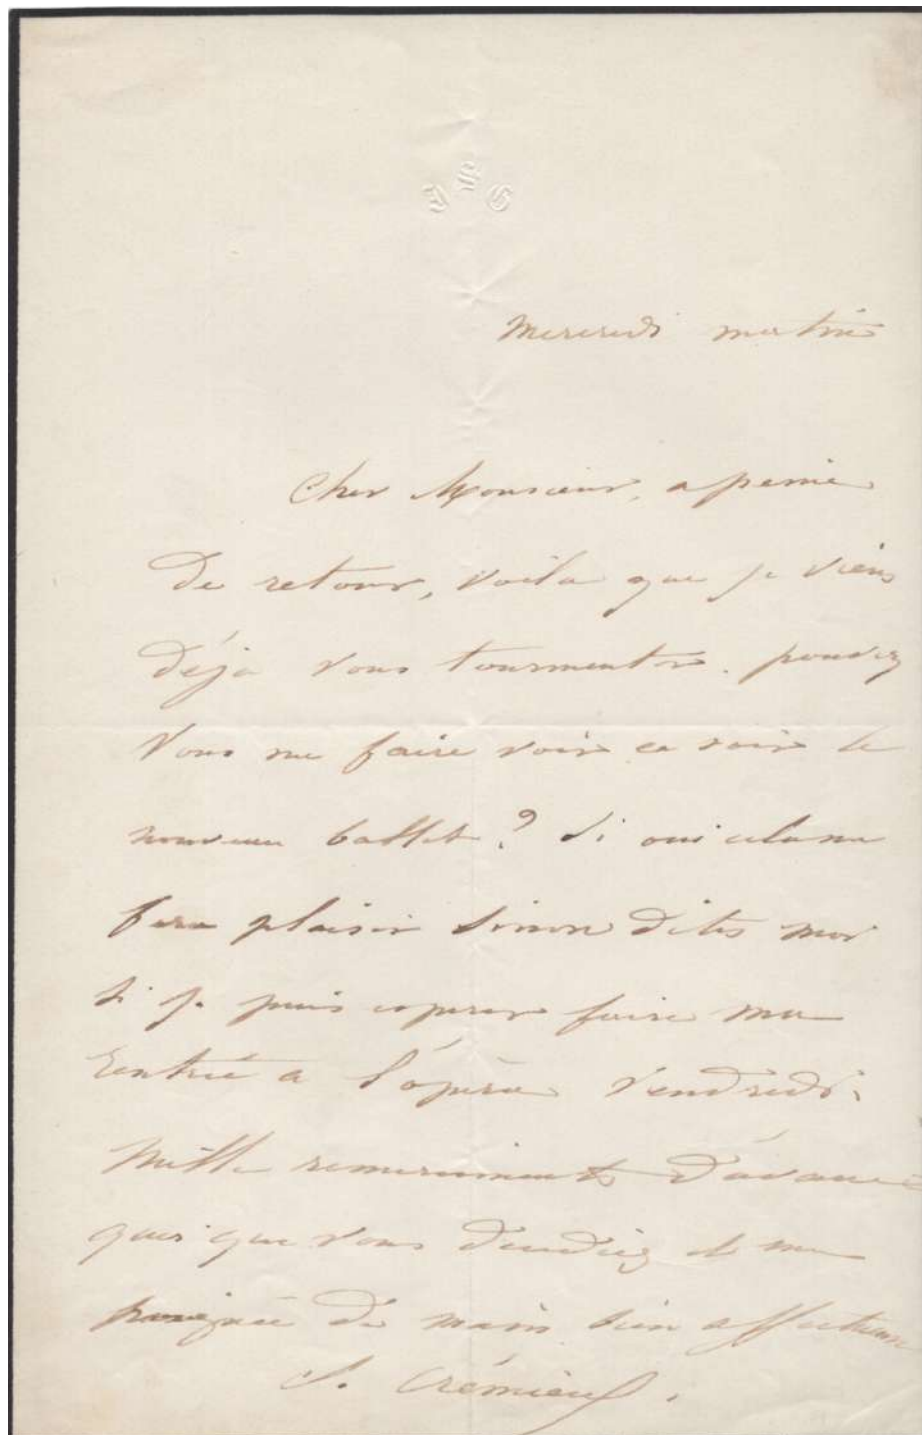 mercredi matin
Cher Monsieur, a peine
de retour, voila que je viens
déja vous tourmenter. pouvez
vous me faire voir ce soir le
nouveau ballet? Si oui cela me
fera plaisir sinon dites moi
si je puis esperer faire ma
rentrée a l'opèra vendredi.
Mille remerciments d'avance
quoi que vous décidiez et ma
poignée de main bien affectueuse
Crémieux.